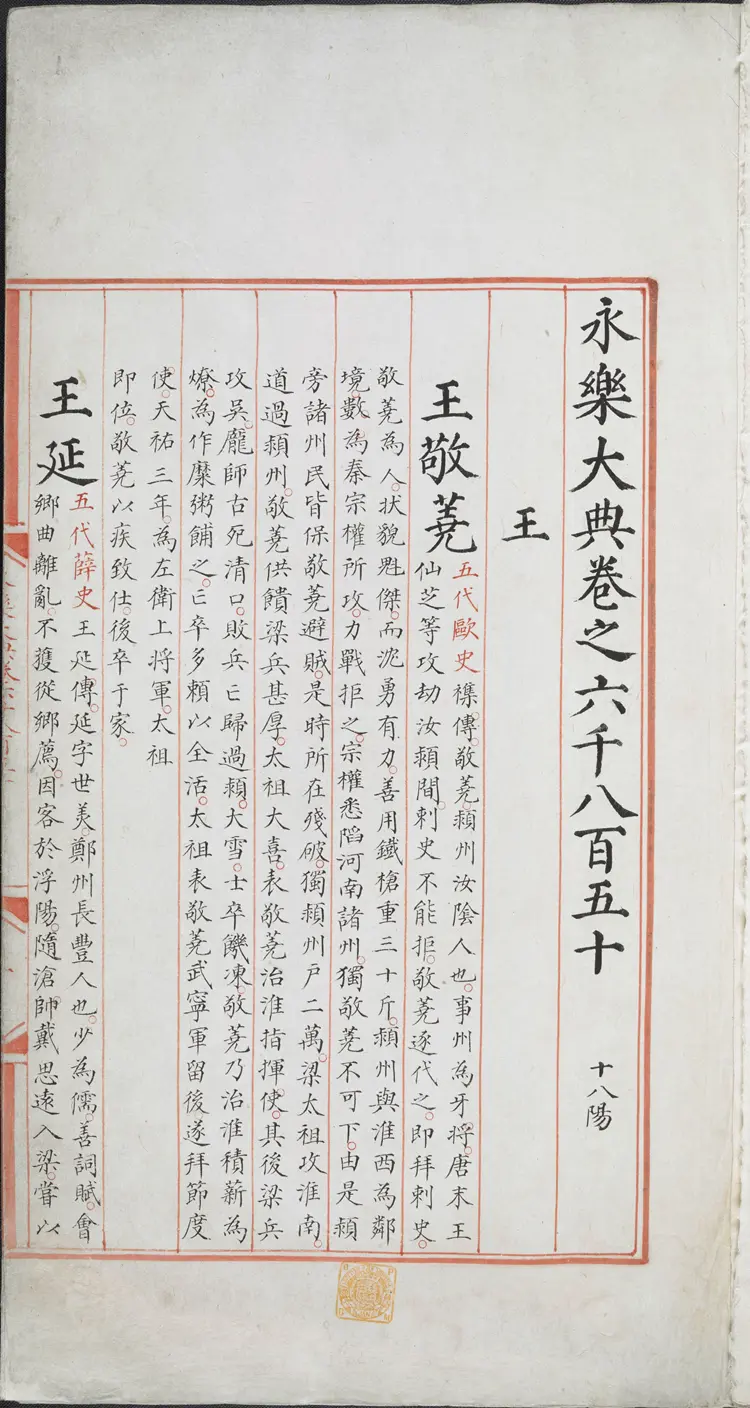 永樂大典卷之六千八百五十 十八陽
王
王敬荛
五代歐史襍傳。敬荛。頴州汝陰人也。事州為牙將。唐末王
仙芝等攻劫汝頴間。刺史不能拒。敬荛逐代之。即拜刺史。
敬荛為人。狀貌魁傑。而沈勇有力。善用鐵槍重三十斤。頴州與淮西為鄰
境。數為秦宗權所攻。力戰拒之。宗權悉䧟河南諸州。獨敬荛不可下。由是頴
旁諸州民皆保敬荛避賊。是時所在殘破。獨頴州戸二萬。梁太祖攻淮南。
道過頴州。敬荛供饋梁兵甚厚。太祖大喜。表敬荛治淮指揮使。其後梁兵
攻吳。龐師古死清口。敗兵亡歸過頴。大雪。士卒饑凍。敬荛乃治淮積薪為
燎。為作糜粥餔之。亡卒多頼以全活。太祖表敬荛武寧軍留後。遂拜節度
使。天祐三年。為左衛上將軍。太祖
即位。敬荛以疾致仕。後卒于家。
王延
五代薛史王延傳。延字世美。鄭州長豐人也。少為儒。善詞賦。會
鄉曲離亂。不獲從鄉薦。因客於浮陽。隨滄帥戴思遠入梁。嘗以